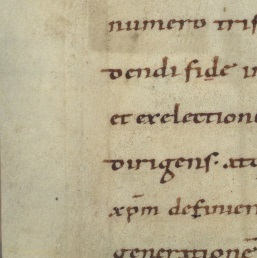 numero tris
dendi fide in
et exelectione
dirigens. atq
xp̄m definier
generatione